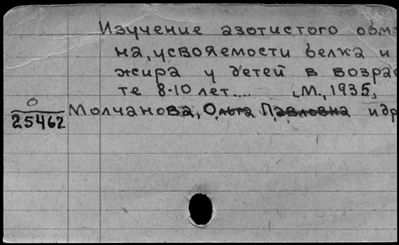 Изучение азотистого обме
на, усвояемости белка и
жира у детей в возрас
те 8-10 лет.... М., 1935,
О
25462
Молчанова, Ольга Павловна и др